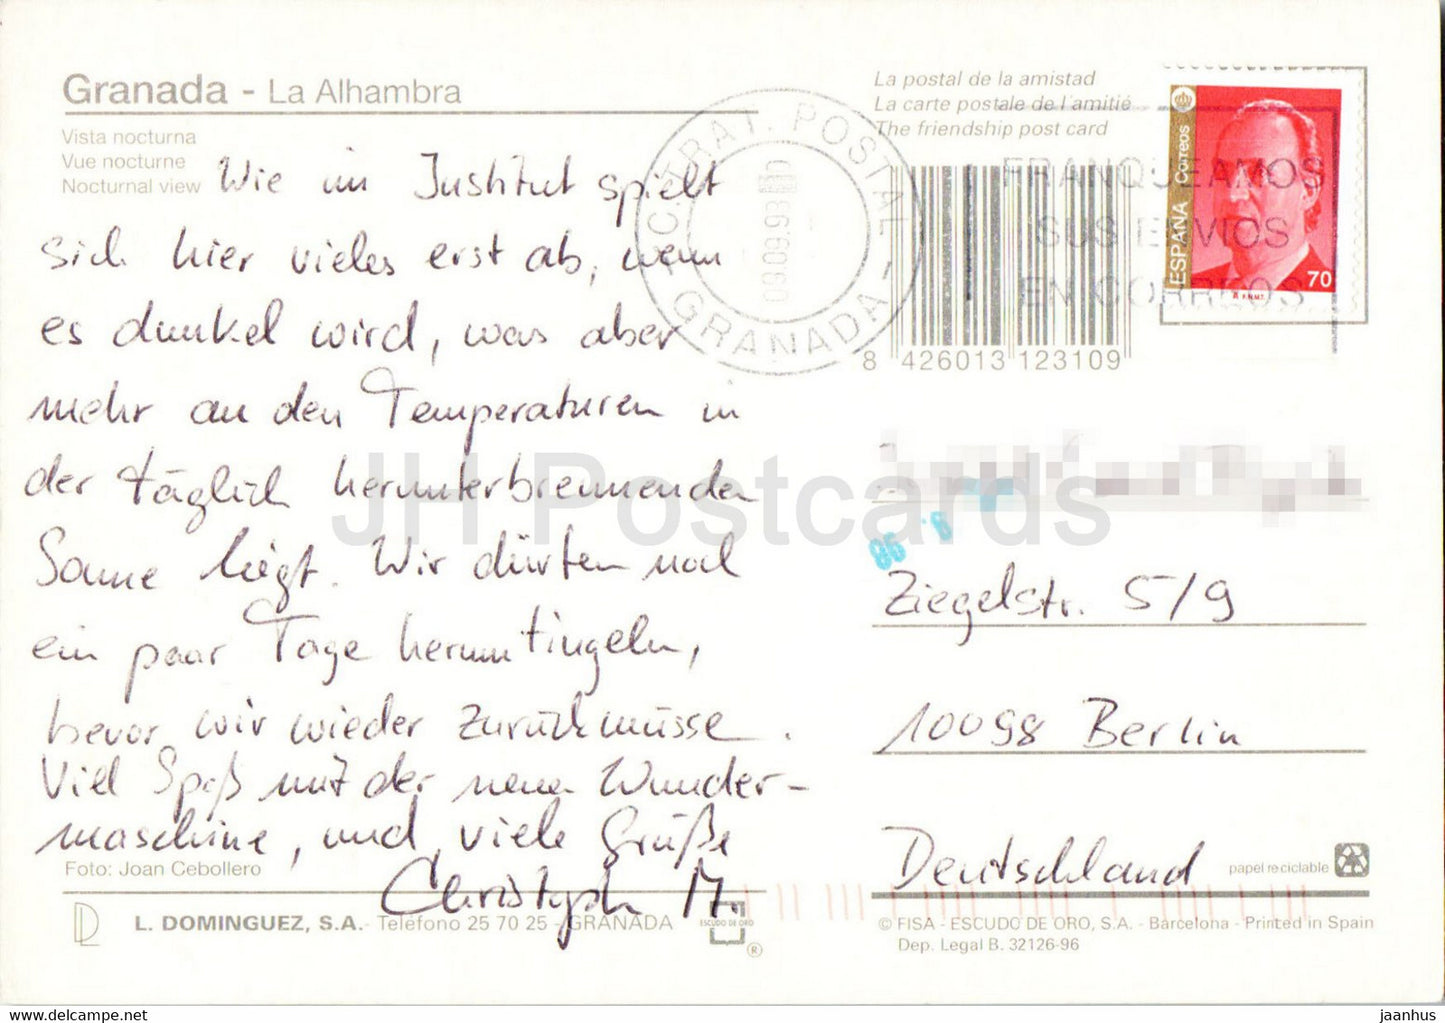 Granada - La Alhambra
Vista nocturna
Vue nocturne
Nocturnal view
Wie im Institut spielt
sich hier vieles erst ab, wenn
es dunkel wird, was aber
mehr an den Temperaturen in
der täglich herunterbrennenden
Sonne liegt. Wir dürfen noch
ein paar Tage herumtingeln,
bevor wir wieder zurück müsse.
Viel Spaß mit der neuen Wunder-
maschine, und viele Grüße
Christoph M.
Foto: Joan Cebollero
L. DOMINGUEZ, S.A. - Teléfono 25 70 25 - GRANADA
ESCUDO DE ORO
®
La postal de la amistad
La carte postale de l'amitié
The friendship post card
POSTAL
GRANADA
09.09.98
FRANQUEAMOS
SUS ENVIOS
EN CORREOS
ESPAÑA Correos
70
8 426013 123109
Ziegelstr. 5/9
10098 Berlin
Deutschland
papel reciclable
© FISA - ESCUDO DE ORO, S.A. - Barcelona - Printed in Spain
Dep. Legal B. 32126-96
JH Postcards
hippostcard.com
jaanhus